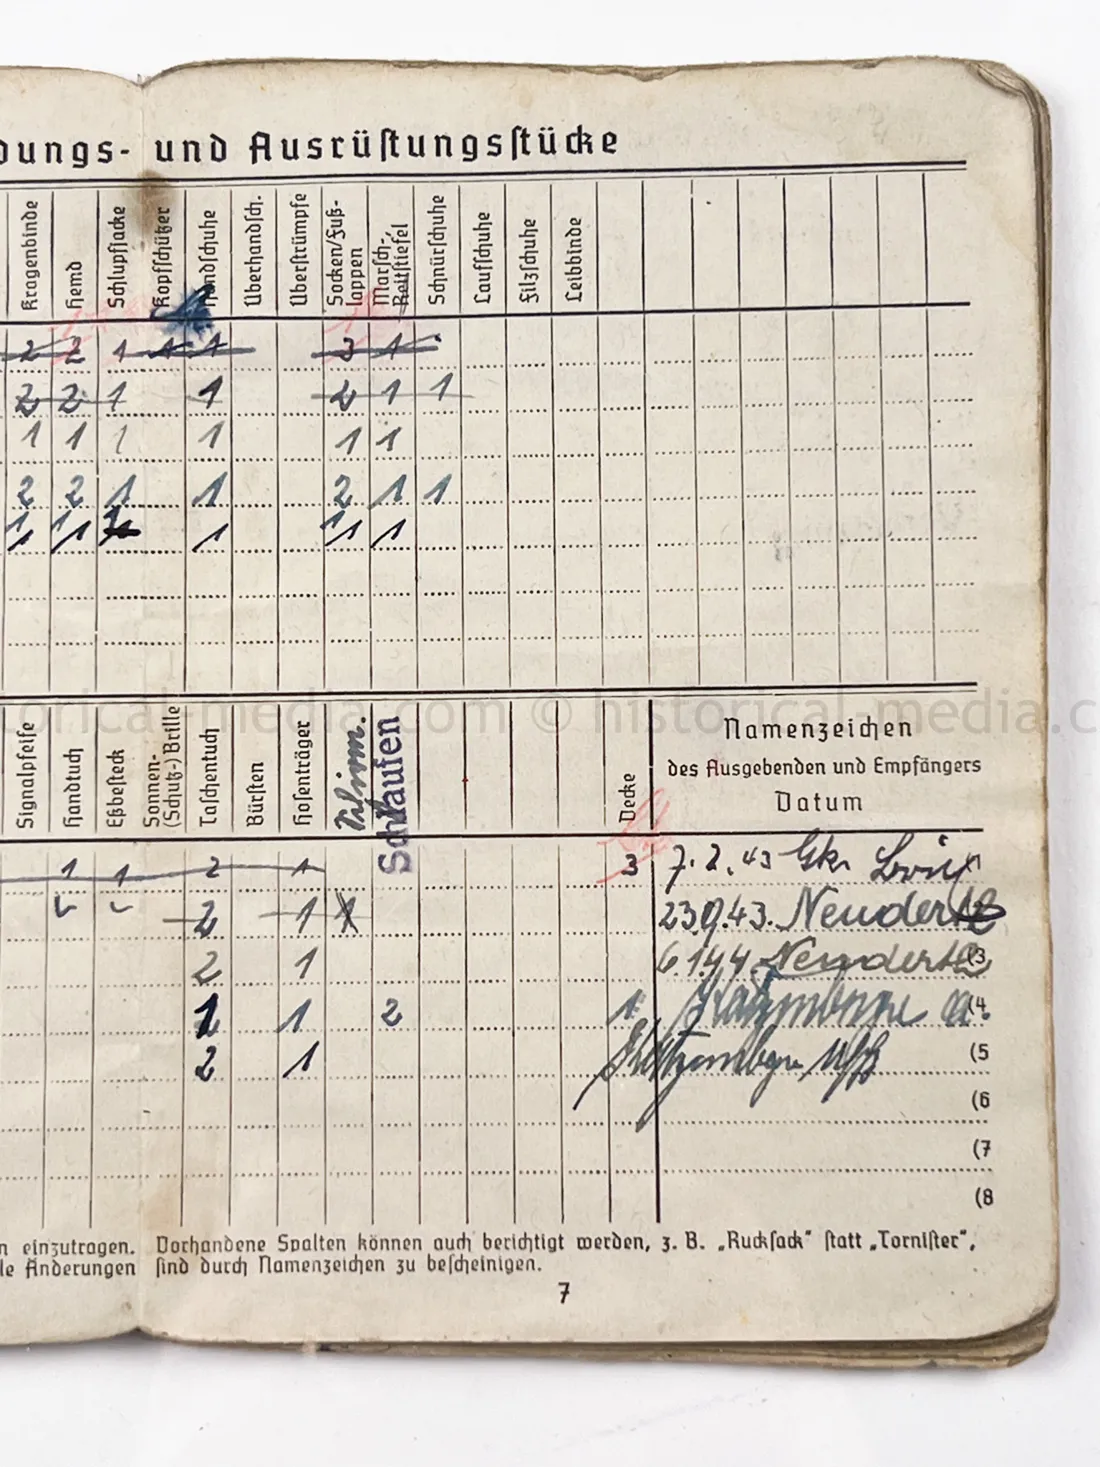 dungs- und Ausrüstungsstücke
Kragenbinde Hemd Schlupfjacke Kopfschützer Handschuhe Überhandsch. Überstrümpfe Socken/Fuß-lappen Marsch-Reitstiefel Schnürschuhe Laufschuhe Filzschuhe Leibbinde
2 2 1 1 1 3 1
2 2 1 1 2 1 1
1 1 1 1 1 1
2 2 1 1 2 1 1
1 1 1 1 1 1 1 1 1
historical-media.com © historical-media.c
Signalpfeife Handtuch Eßbesteck Sonnen-(Schutz-)Brille Taschentuch Bürsten Hosenträger Schlaufen Decke
Namenzeichen
des Ausgebenden und Empfängers
Datum
1 1 2 1 3 7.2.43
2 1 1 23.9.43. Neudert (2
2 1 6.1.44 Neudert (3
1 1 2 1 (4
2 1 Uffz (5
(6
(7
(8
n einzutragen. Vorhandene Spalten können auch berichtigt werden, z. B. „Rucksack" statt „Tornister",
le Änderungen sind durch Namenzeichen zu bescheinigen.
7